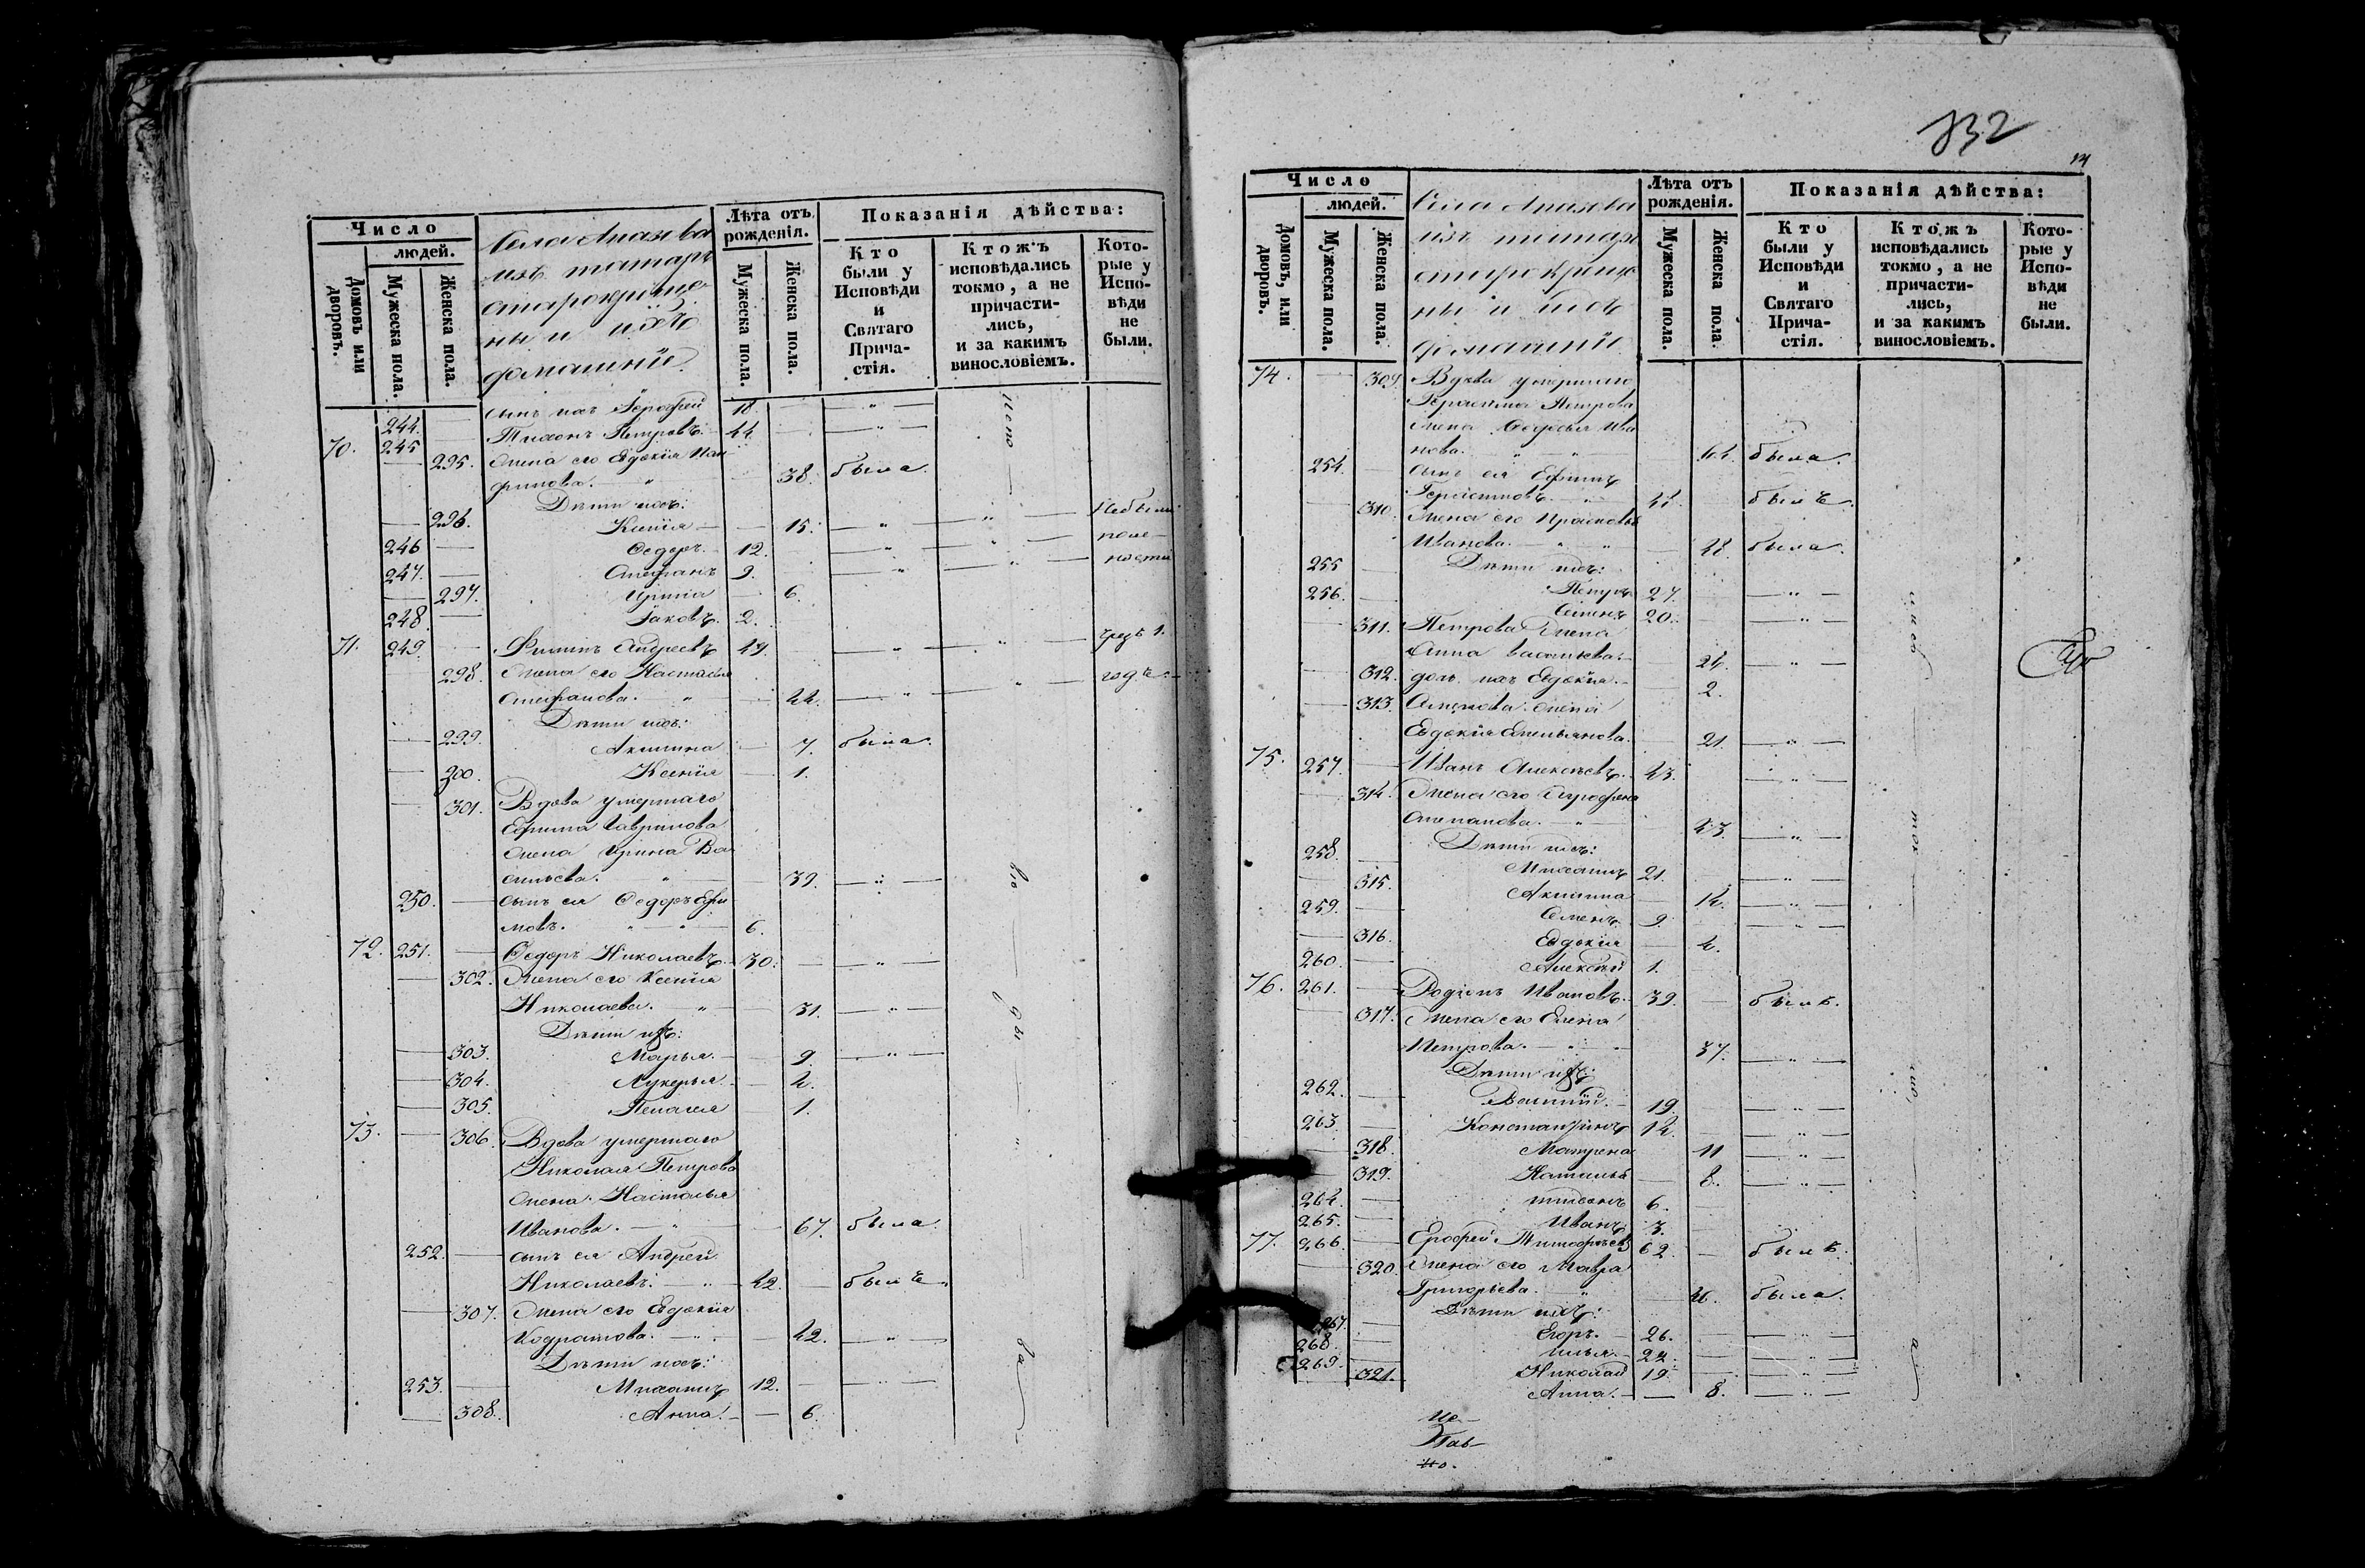 Число
людей.
Домовъ или дворовъ.
Мужеска пола.
Женска пола.
Села Апазова
изъ татаръ
старокреще-
ны и ихъ
домашніе
Лѣта отъ рожденія.
Мужеска пола.
Женска пола.
Показанія дѣйства:
Кто были у Исповѣди и Святаго Прича-стія.
Ктожъ исповѣдались токмо, а не причасти-лись, и за какимъ винословіемъ.
Кото-рые у Испо-вѣди не были.
244. сынъ ихъ Ерофей 18. — „ —
70. 245 Тихонъ Петровъ. 44. — „ —
295. Жена его Евдокія Пан
филова. „ 38. была.
Дѣти ихъ:
296. Ксенія — 15. — „ — „ — Небыли
246 — Ѳедоръ. — 12. — „ — „ —
247. — Стефанъ 9. — „ — „ —
297. Ирина — 6.
248. — Іаковъ. 2.
71. 249. Филипъ Андреевъ 49. — „ — „ — чрезъ 1.
298. Жена его Настасья годъ.
Стефанова. „ 44. — „ — „
Дѣти ихъ:
299. Акилина — 7. была.
300. Ксенія — 1.
301. Вдова умершаго
Ефима Гаврилова
жена Ирина Ва
сильева. — „ — 39. — „ —
250. — сынъ ея Ѳедоръ Ефи
мовъ. „ — „ — 6.
72. 251. — Ѳедоръ Николаевъ. 30. — „ —
302. Жена его Ксенія
Николаева. „ — 31. — „ —
Дѣти ихъ:
303. Марья. — 9. — „ —
304. Лукерья. — 4.
305. Пелагея — 1.
73. — 306. Вдова умершаго
Николая Петрова
жена Настасья
Иванова. — „ — 67. была.
252. — сынъ ея Андрей
Николаевъ. — „ — 42. — былъ
307. Жена его Евдокія
Кодратова. — „ — 42. — „ —
Дѣти ихъ:
253. Михаилъ 12. — „ —
308. Анна. — 6.
832
Число
людей.
Домовъ, или дворовъ.
Мужеска пола.
Женска пола.
Села Апазова
изъ татаръ
старокреще
ны и ихъ
домашніе
Лѣта отъ рожденія.
Мужеска пола.
Женска пола.
Показанія дѣйства:
Кто были у Исповѣди и Святаго Прича-стія.
Ктожъ исповѣдались токмо, а не причасти-лись, и за какимъ винословіемъ.
Кото-рые у Испо-вѣди не были.
74. — 309. Вдова умершаго
Герасима Петрова
жена Ѳедосья Ива
нова. „ — 64. была.
254. сынъ ея Ефимъ
Герасимовъ. „ былъ.
310. Жена его Прасковья
Иванова. „ — 48. была.
255 — Дѣти ихъ:
256. — Петръ 27. — „ —
Семенъ 20. — „ —
311. Петрова жена
Анна Васильева. — 24. — „ —
312. дочь ихъ Евдокія. — 2.
313. Семенова жена
Евдокія Емельянова. 21. — „ —
75. 257. — Иванъ Алексѣевъ. 43. — „ —
314. Жена его Агрофена
Степанова. — „ — 43. — „ —
258. — Дѣти ихъ:
Михаилъ 21. — „ —
315. Акилина — 14. — „ —
259. — Семенъ. 9. — „ —
316. Евдокія — 4.
260. — Алексѣй 1.
76. 261. — Родіонъ Ивановъ. 39. — былъ.
317. Жена его Елена
Петрова. — „ — 37. — „ —
Дѣти ихъ:
262. — Василій. — 19. — „ —
263. — Константинъ 14. — „ —
318. Матрена 11 — „ —
319. Наталья — 8. — „ —
264. — Тихонъ 6.
265. — Иванъ 3.
77. 266. — Ерофей Тимофѣевъ 62. — былъ.
320. Жена его Мавра
Григорьева. „ 46. была.
Дѣти ихъ:
267. — Егоръ. — 26. — „ —
268. — Илья. — 22. — „ —
269. — Николай 19. — „ —
321. Анна. — 8. — „ —